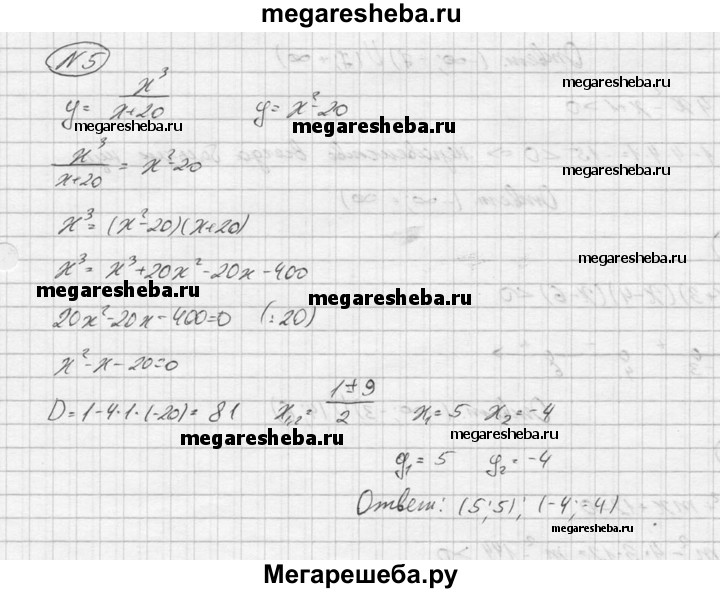 megaresheba.ru
N5
y = x³/(x+20) y = x²-20
megaresheba.ru
megaresheba.ru
megaresheba.ru
x³/(x+20) = x²-20
megaresheba.ru
x³ = (x²-20)(x+20)
megaresheba.ru
x³ = x³+20x²-20x-400
megaresheba.ru
megaresheba.ru
20x²-20x-400=0 (:20)
x²-x-20=0
D = 1-4·1·(-20) = 81 x₁,₂ = (1±9)/2 x₁ = 5 x₂ = -4
megaresheba.ru
megaresheba.ru
y₁ = 5 y₂ = -4
Ответ: (5;5); (-4;-4)
megaresheba.ru
Мегарешеба.ру